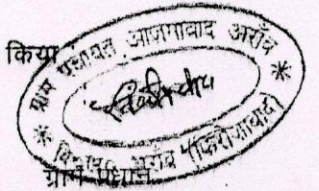 किया
ग्राम पंचायत आजमाबाद अराँव
* वि० ख० अराँव (फिरोजाबाद) *
ग्राम प्रधान